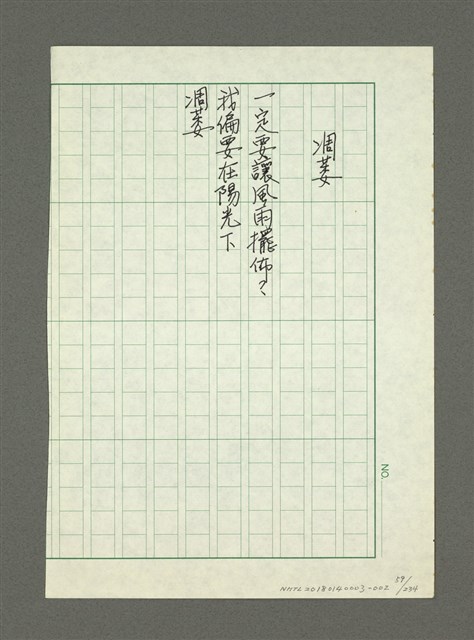 凋萎
一定要讓風雨擺佈？
我偏要在陽光下
凋萎
NO.
NMTL20180140003-002
59/234